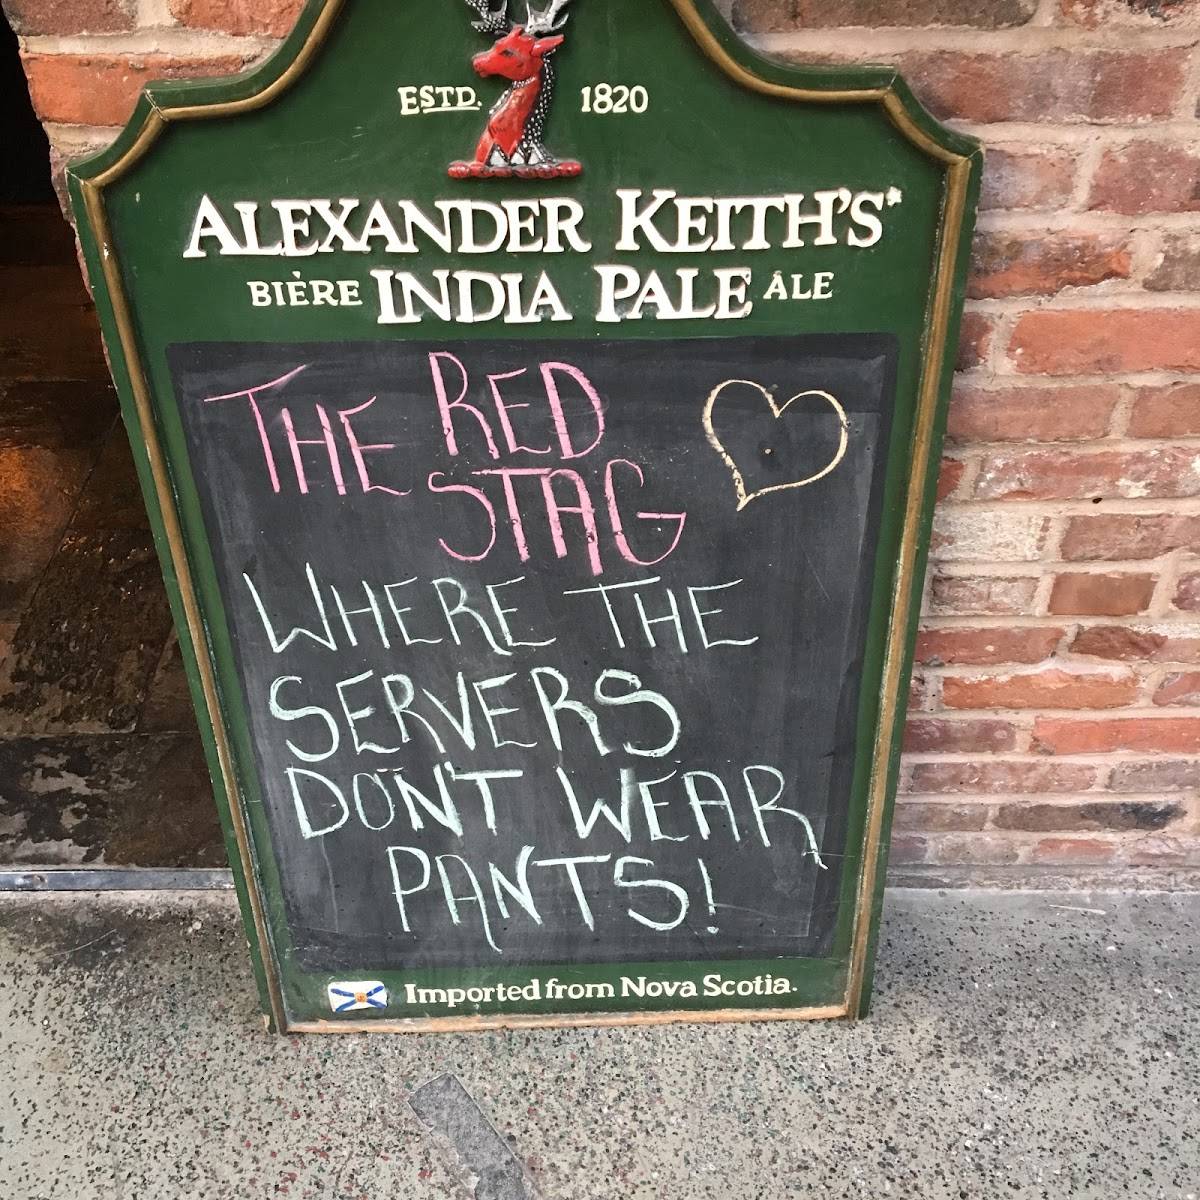 ESTD. 1820
ALEXANDER KEITH'S*
BIÈRE INDIA PALE ÂLE
THE RED
STAG
WHERE THE
SERVERS
DON'T WEAR
PANTS!
Imported from Nova Scotia.